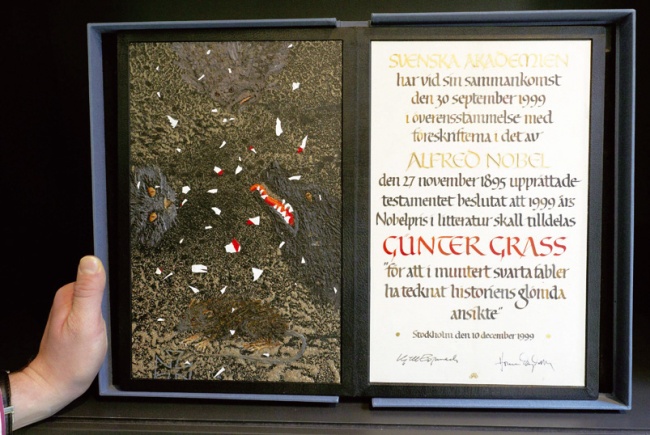 SVENSKA AKADEMIEN
har vid sin sammankomst
den 30 september 1999
i överensstämmelse med
föreskrifterna i det av
ALFRED NOBEL
den 27 november 1895 upprättade
testamentet beslutat att 1999 års
Nobelpris i litteratur skall tilldelas
GÜNTER GRASS
"för att i muntert svarta fabler
ha tecknat historiens glömda
ansikte"
Stockholm den 10 december 1999